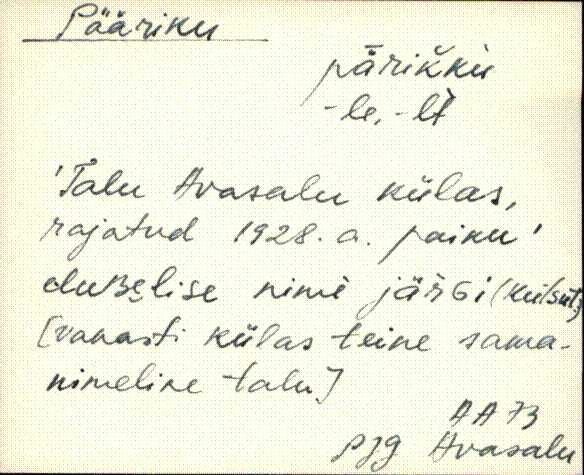 Pääriku
pärikku
-le, -lt
'Talu Avasalu külas,
rajatud 1928. a. paiku'
nime järgi (
[vanasti külas teine sama-
nimeline talu]
AA 73
Pjg Avasalu